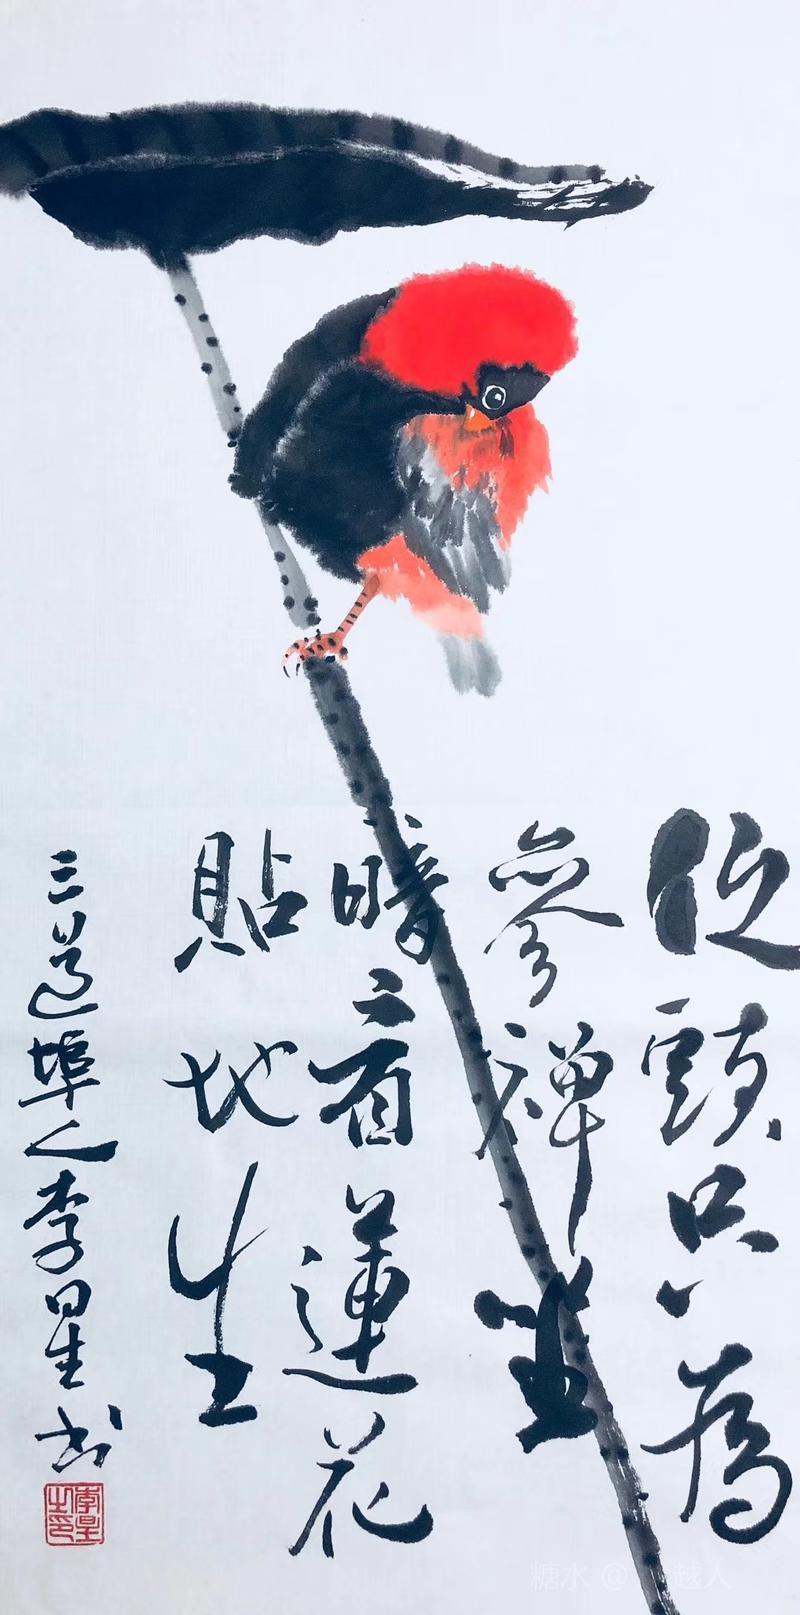 低頭只為
參禪坐
暗看蓮花
貼地生
三道埠人李星书
李星之印
糖水 @越人